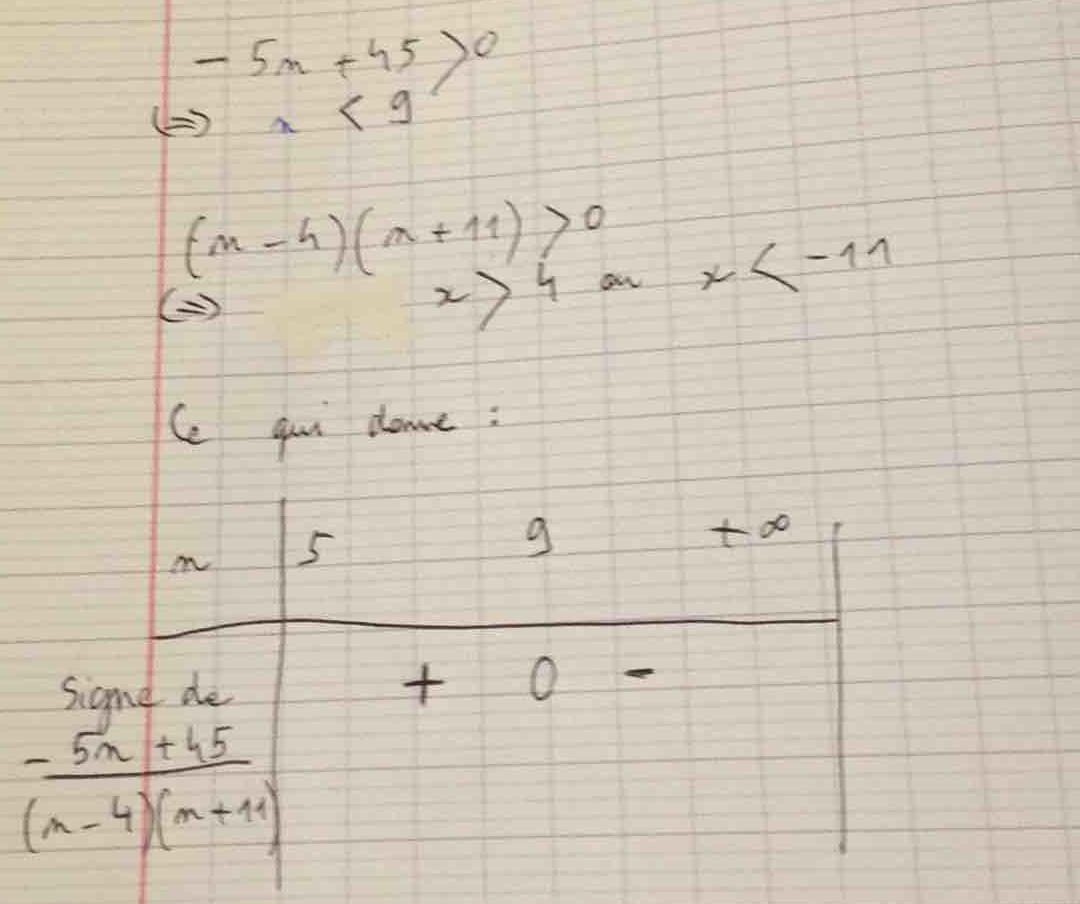 - 5n + 45 > 0
⟺ n < 9
(n - 4)(n + 11) > 0
⟺ x > 4 ou x < -11
Ce qui donne :
n 5 9 +∞
Signe de + 0 -
- 5n + 45
(n - 4)(n + 11)